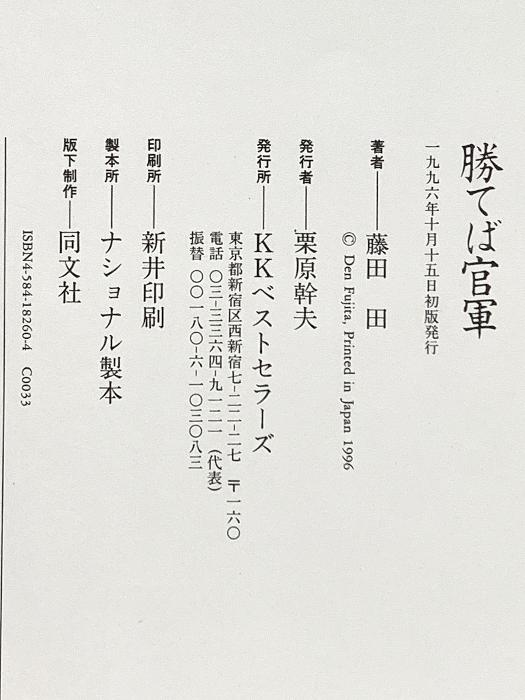 勝てば官軍
一九九六年十月十五日初版発行
著者――藤田 田
© Den Fujita, Printed in Japan 1996
発行者――栗原幹夫
発行所――KKベストセラーズ
東京都新宿区西新宿七-二二-二七 〒一六〇
電話 〇三-三三六四-九一二一(代表)
振替 〇〇一八〇-六-一〇三〇八三
印刷所――新井印刷
製本所――ナショナル製本
版下制作―同文社
ISBN4-584-18260-4 C0033